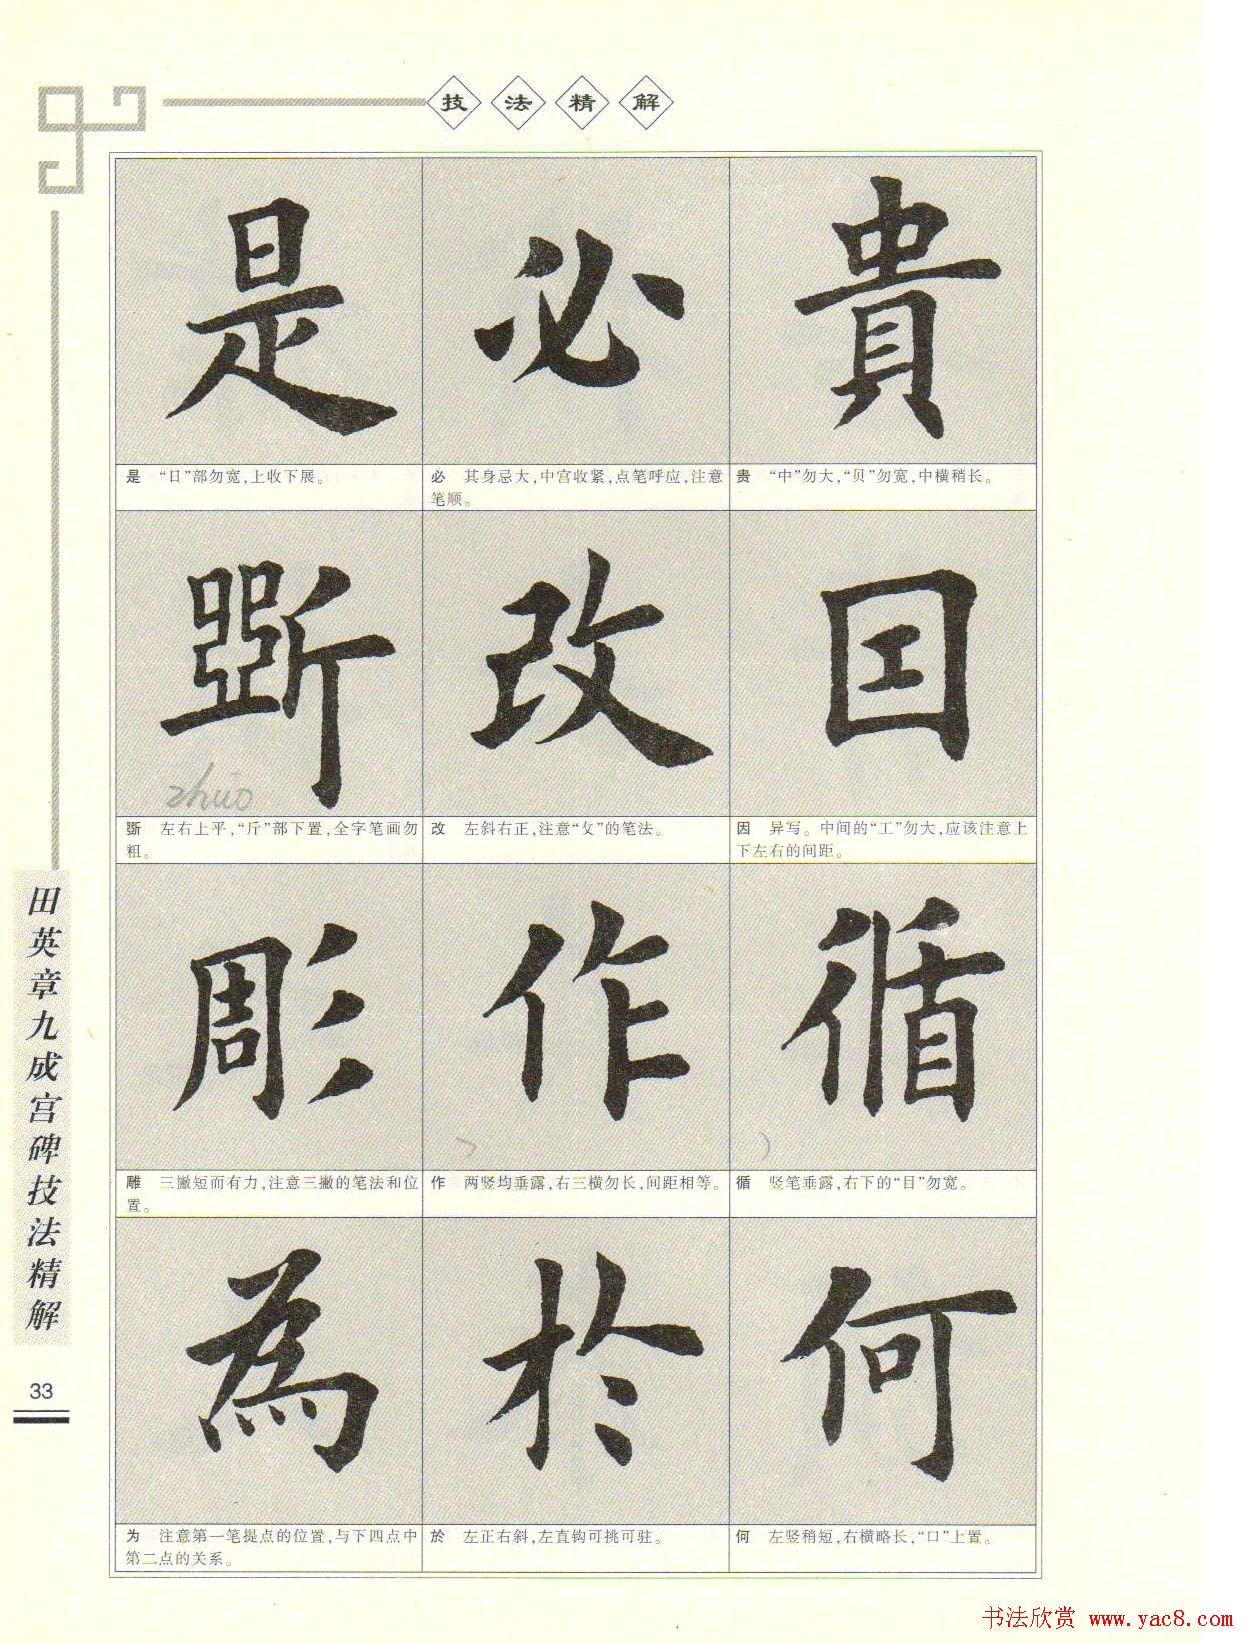 技法精解
是 必 貴
是 “日”部勿宽,上收下展。
必 其身忌大,中宫收紧,点笔呼应,注意
笔顺。
贵 “中”勿大,“贝”勿宽,中横稍长。
斵 改 囙
zhuō
斵 左右上平,“斤”部下置,全字笔画勿
粗。
改 左斜右正,注意“攵”的笔法。
因 异写。中间的“工”勿大,应该注意上
下左右的间距。
彫 作 循
雕 三撇短而有力,注意三撇的笔法和位
置。
作 两竖均垂露,右三横勿长,间距相等。
循 竖笔垂露,右下的“目”勿宽。
為 於 何
为 注意第一笔提点的位置,与下四点中
第二点的关系。
於 左正右斜,左直钩可挑可驻。
何 左竖稍短,右横略长,“口”上置。
田英章九成宫碑技法精解
33
书法欣赏 www.yac8.com